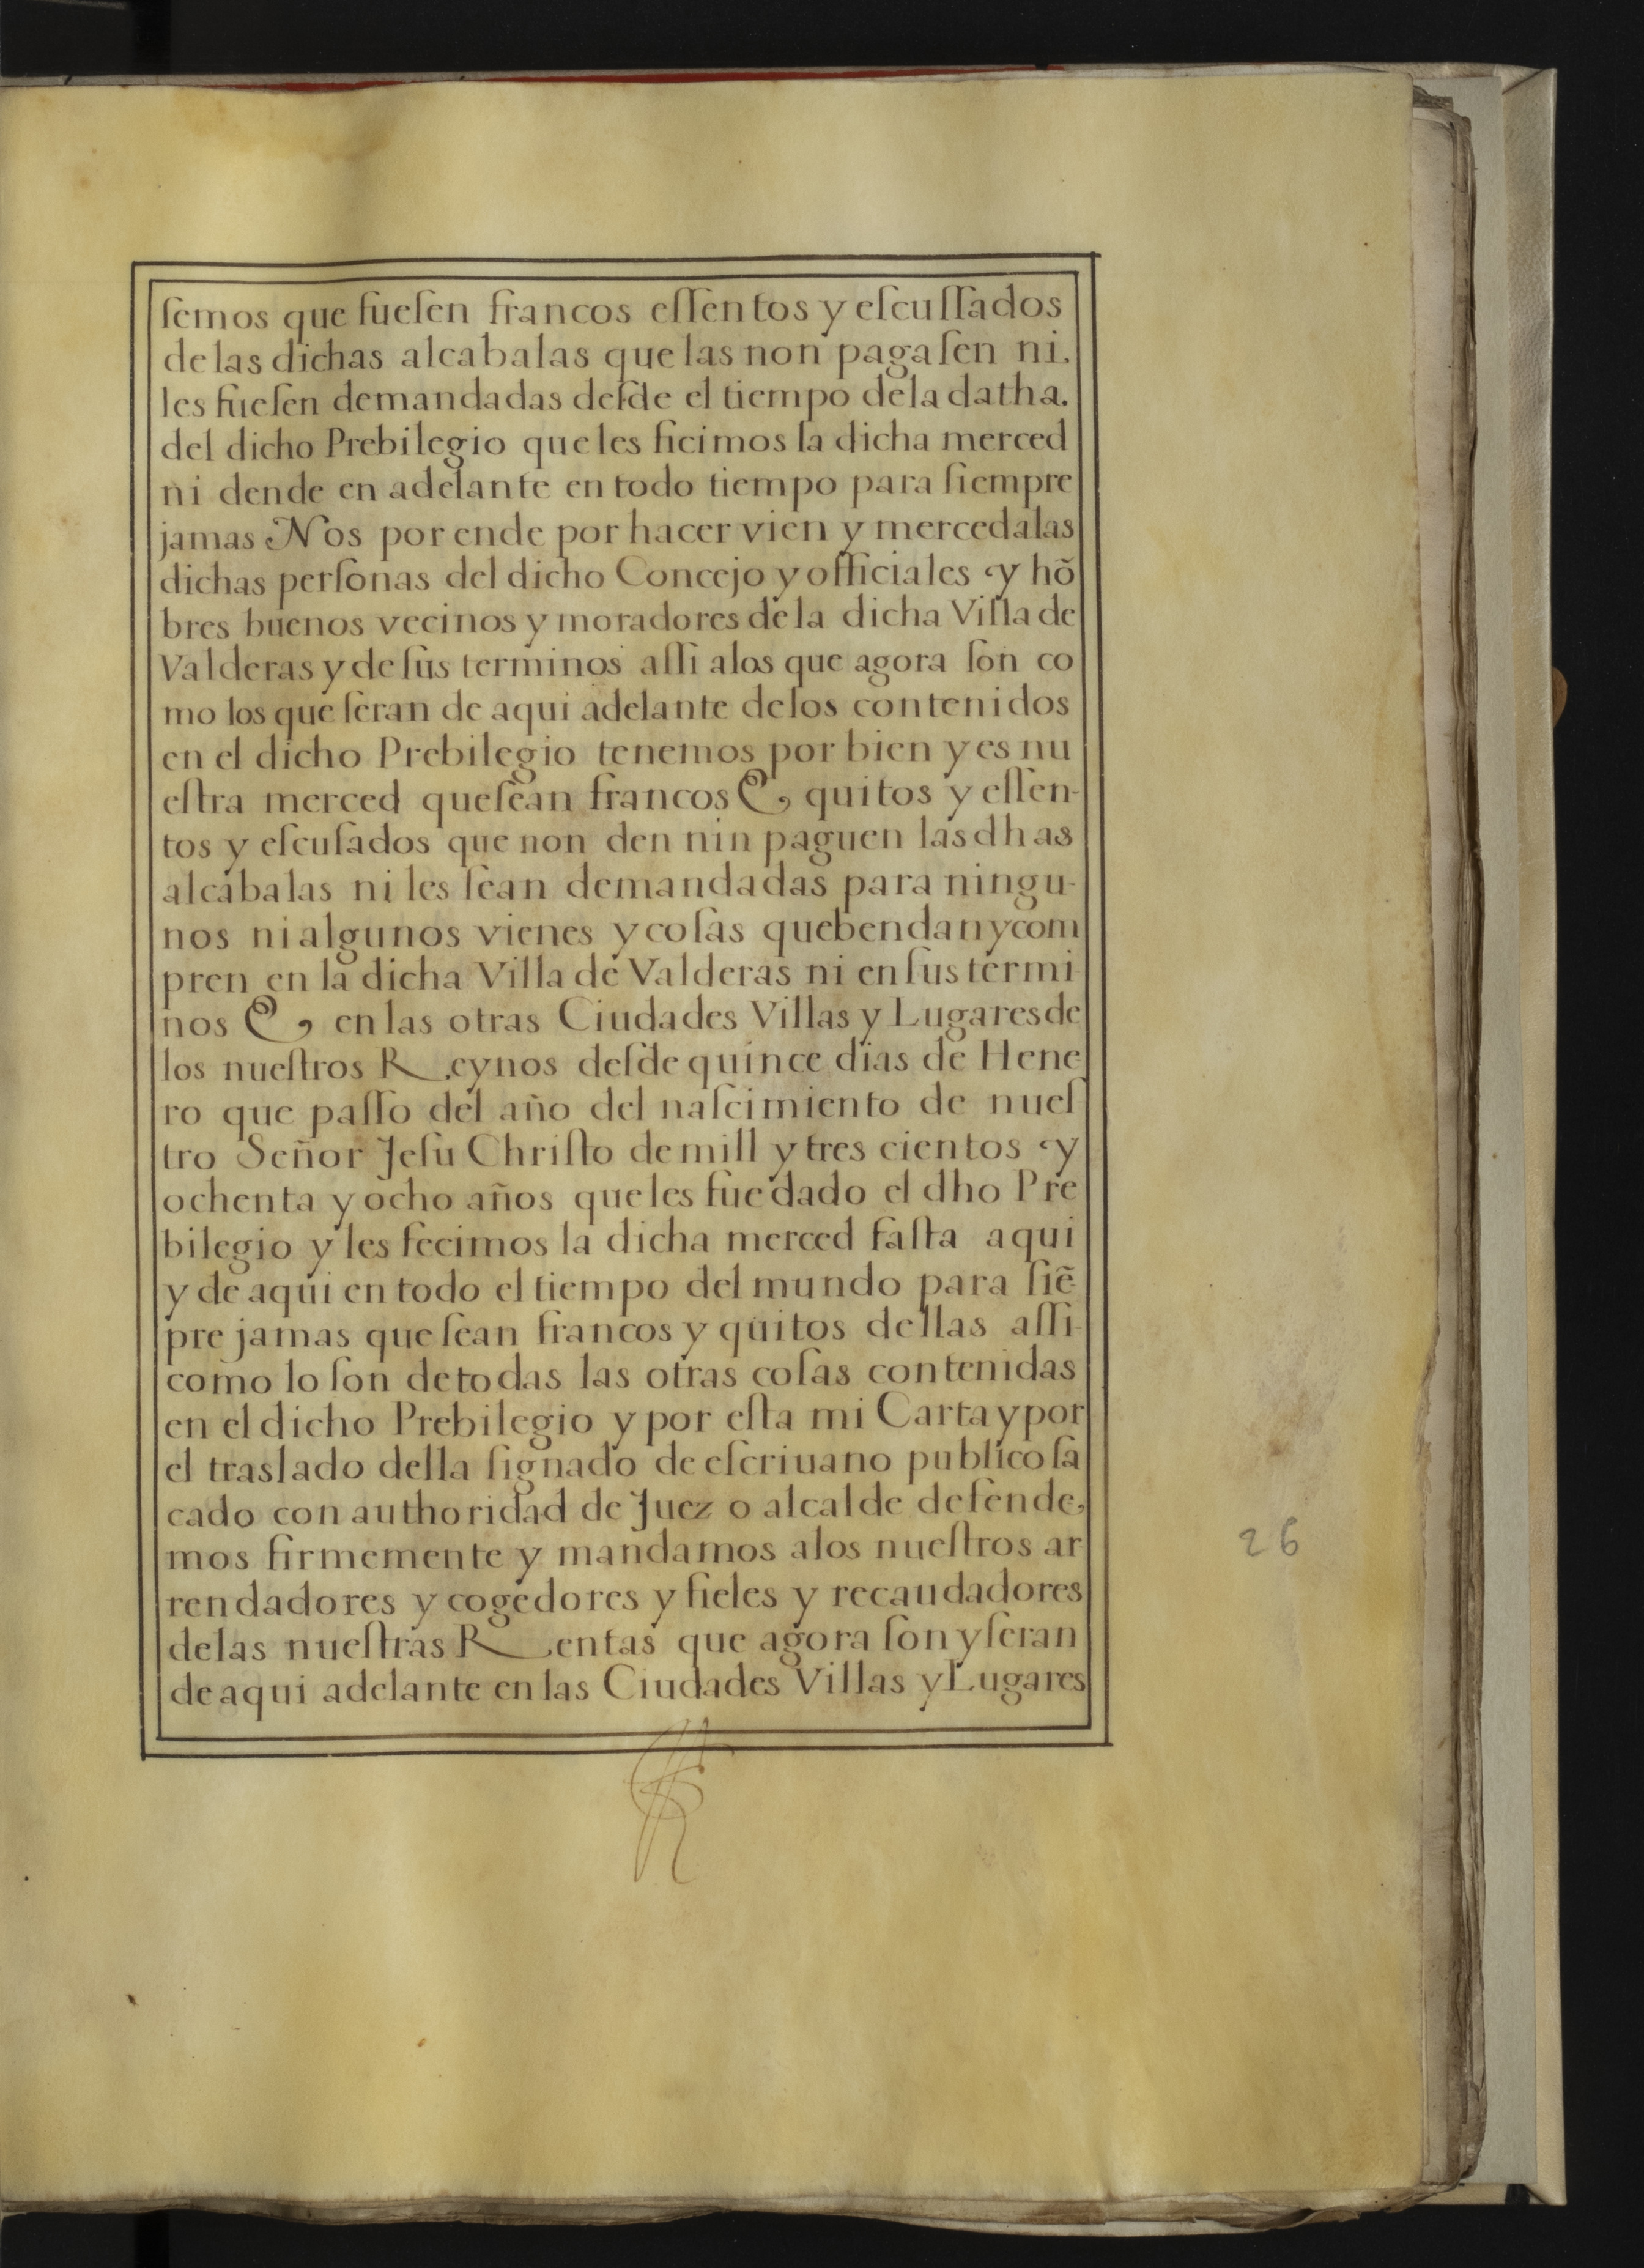 ſemos que fueſen francos eſſentos y eſcuſſados
de las dichas alcabalas que las non pagaſen ni.
les fueſen demandadas deſde el tiempo dela datha.
del dicho Prebilegio que les ficimos la dicha merced
ni dende en adelante en todo tiempo para ſiempre
jamas Nos por ende por hacer vien y merced alas
dichas perſonas del dicho Concejo y officiales y hõ
bres buenos vecinos y moradores de la dicha Villa de
Valderas y de ſus terminos aſſi alos que agora ſon co
mo los que ſeran de aqui adelante delos contenidos
en el dicho Prebilegio tenemos por bien y es nu
eſtra merced que ſean francos E, quitos y eſſen-
tos y eſcuſados que non den nin paguen las dhas
alcabalas ni les ſean demandadas para ningu-
nos ni algunos vienes y coſas que bendan y com
pren en la dicha Villa de Valderas ni en ſus termi
nos E, en las otras Ciudades Villas y Lugares de
los nueſtros Reynos deſde quince dias de Hene
ro que paſſo del año del naſcimiento de nueſ
tro Señor Jeſu Chriſto de mill y tres cientos y
ochenta y ocho años que les fue dado el dho Pre
bilegio y les fecimos la dicha merced faſta aqui
y de aqui en todo el tiempo del mundo para ſiẽ
pre jamas que ſean francos y quitos dellas aſſi
como lo ſon de todas las otras coſas contenidas
en el dicho Prebilegio y por eſta mi Carta y por
el traslado della ſignado de eſcriuano publico ſa
cado con authoridad de Juez o alcalde defende,
mos firmemente y mandamos alos nueſtros ar
rendadores y cogedores y fieles y recaudadores
delas nueſtras Rentas que agora ſon y ſeran
de aqui adelante en las Ciudades Villas y Lugares
26